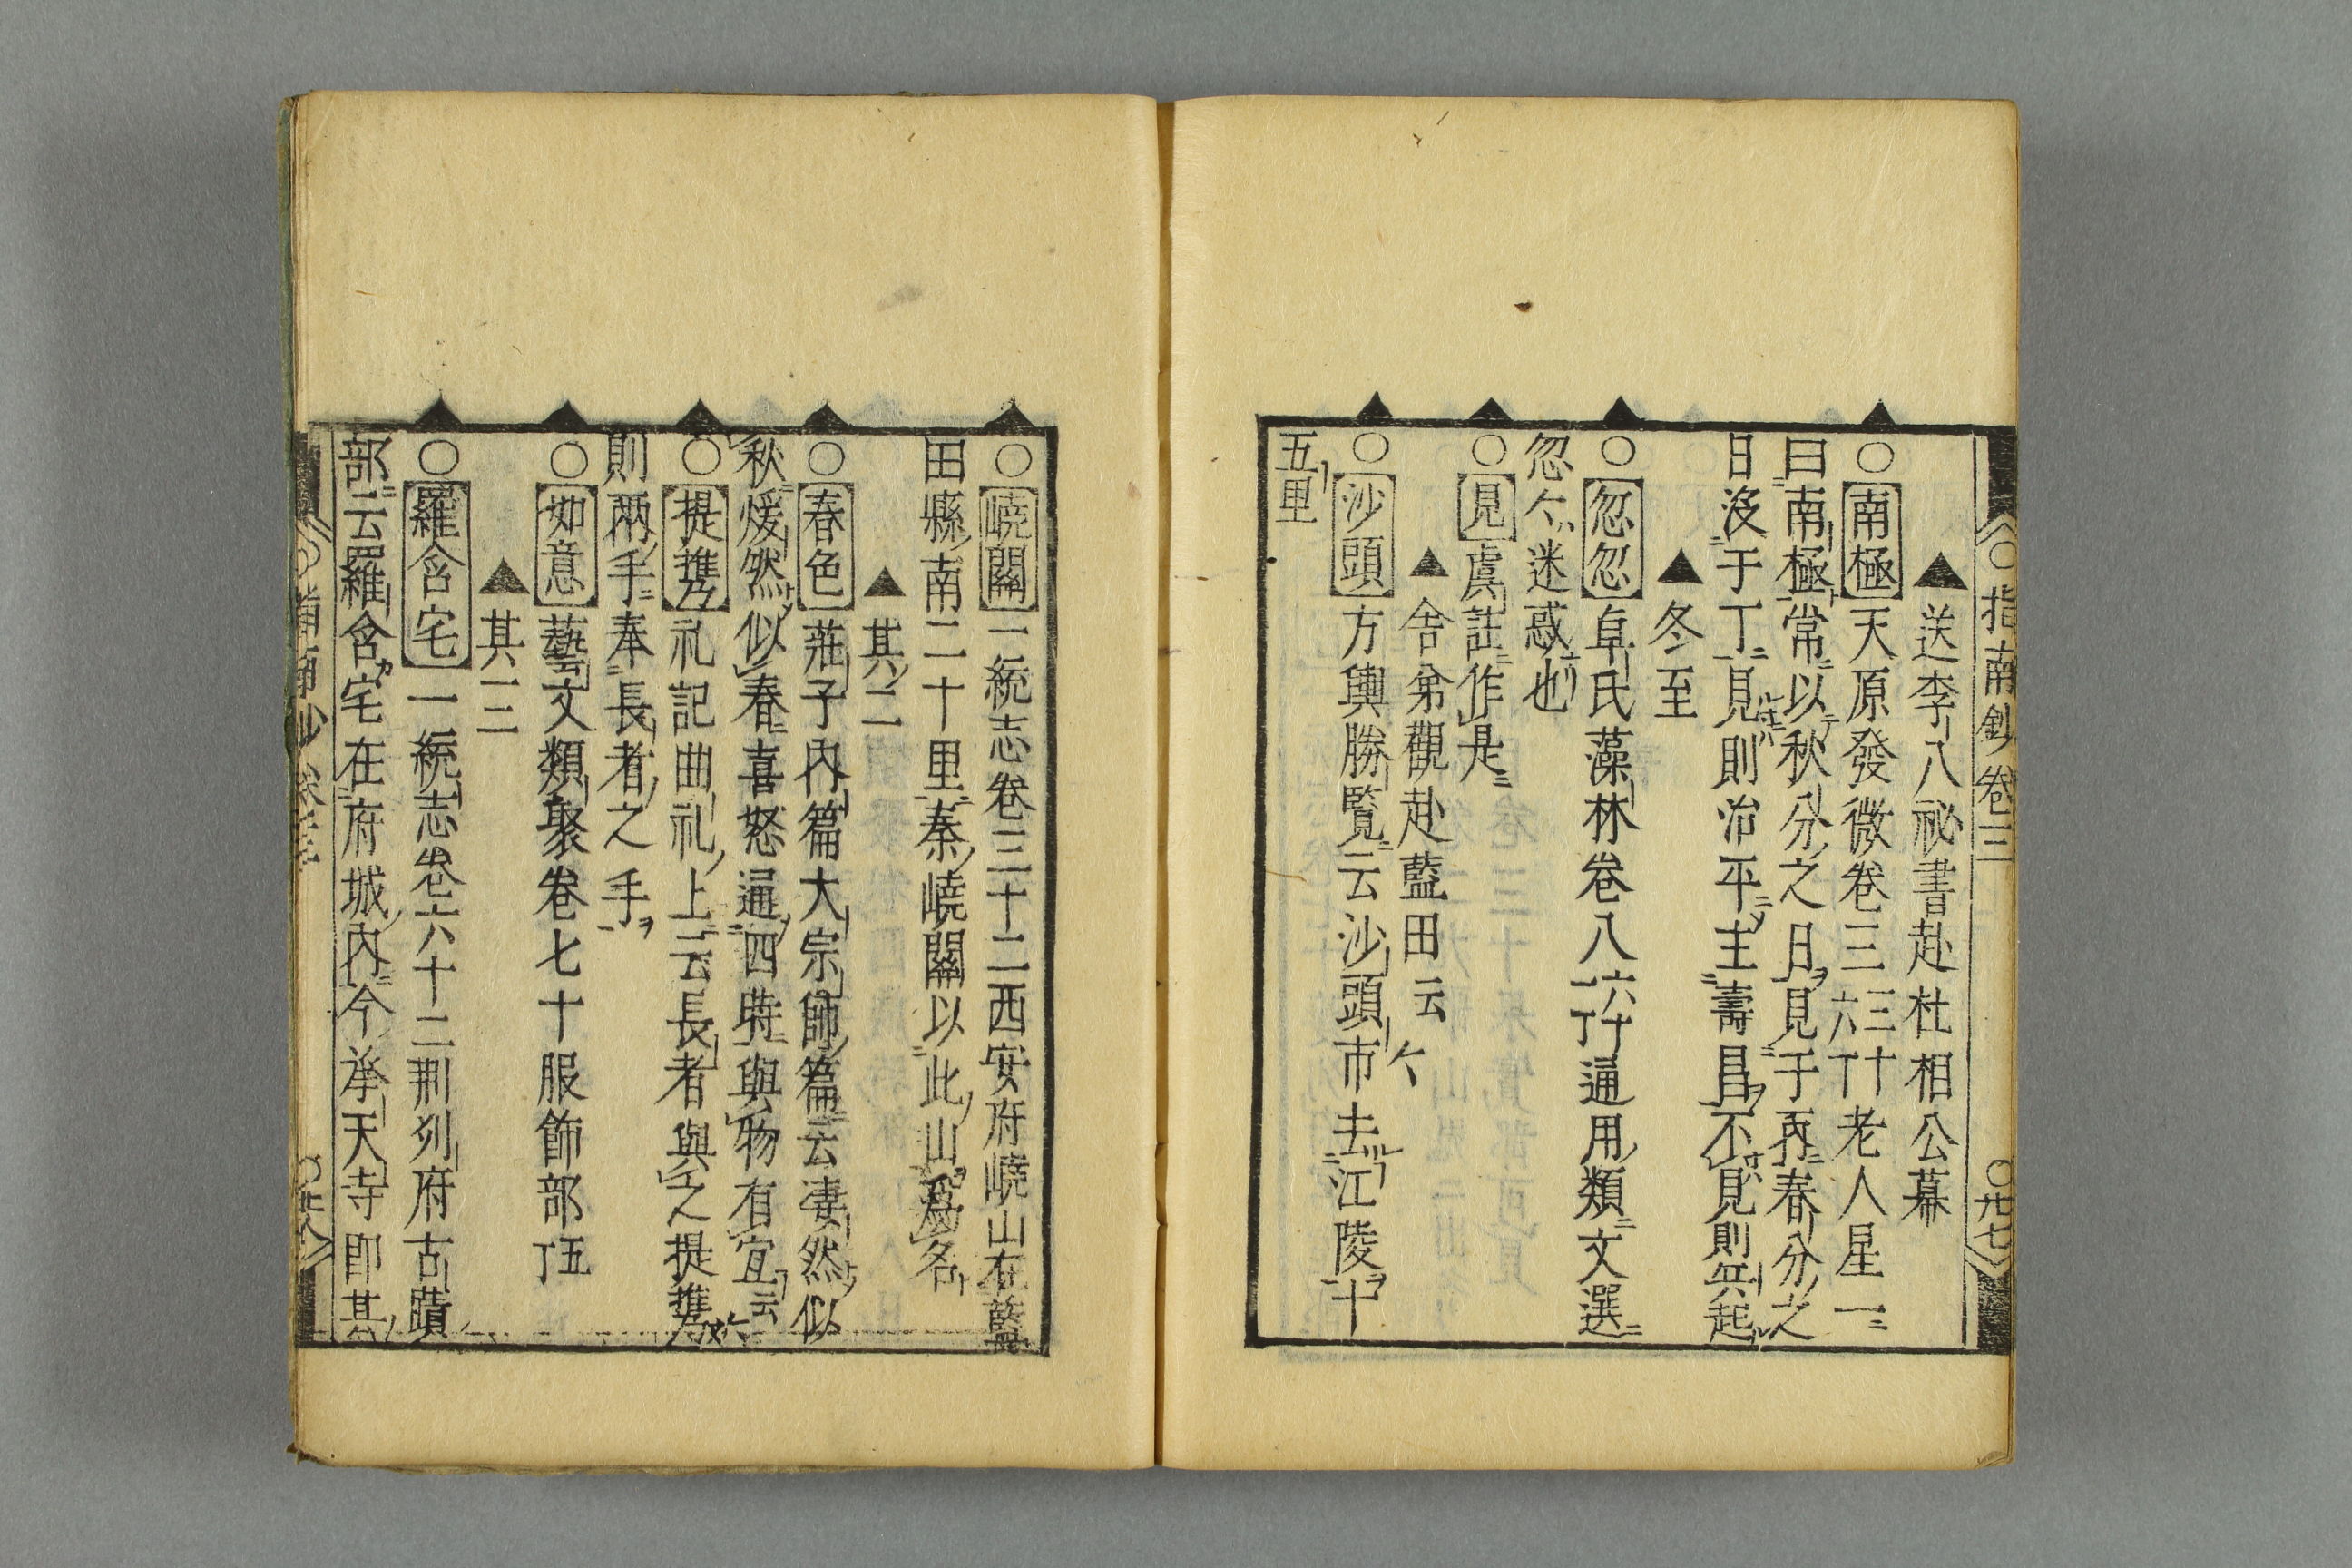 〇指南鈔卷三 〇廿七
▲送李八祕書赴杜相公幕
〇南極 天原發微卷三三十六丁老人星一
曰南極常以秋分之日見于丙春分之
日沒于丁見則治平主壽昌不見則兵起
▲冬至
〇忽忽 阜氏藻林卷八六十一丁通用類文選
忽〻迷惑也
〇見 虞註作是
▲舍弟觀赴藍田云〻
〇沙頭 方輿勝覧云沙頭市去江陵十
五里
〇嶢關 一統志卷三十二西安府嶢山在藍
田縣南二十里秦嶢關以此山爲名
▲其二
〇春色 莊子內篇大宗師篇云凄然似
秋煖然似春喜怒通四時與物有宜云〻
〇提携 礼記曲礼上云長者與之提携
則兩手奉長者之手
〇如意 藝文類聚卷七十服飾部五丁
▲其三
〇羅含宅 一統志卷六十二荆州府古蹟
部云羅含宅在府城內今承天寺即其